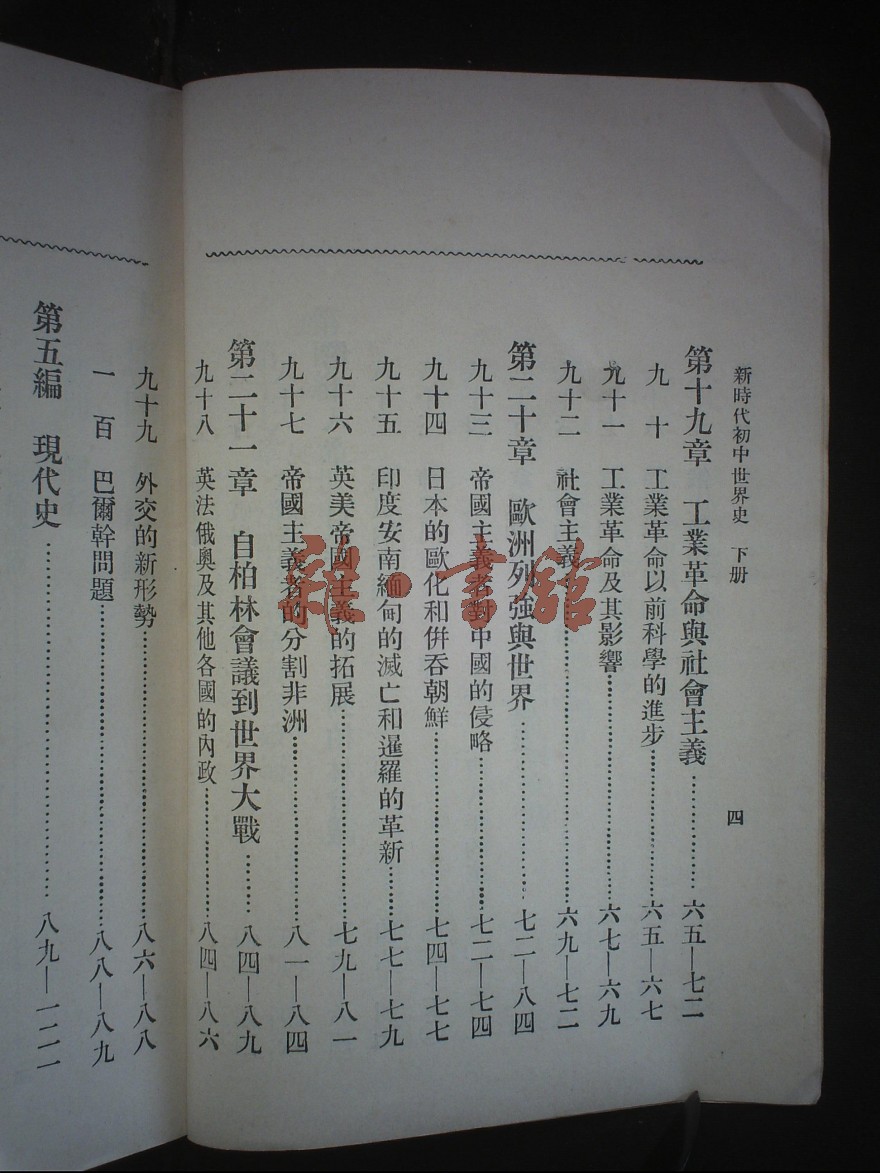 新時代初中世界史　下册
四
第十九章　工業革命與社會主義……………六五—七二
九　十　工業革命以前科學的進步……………六五—六七
九十一　工業革命及其影響……………六七—六九
九十二　社會主義……………六九—七二
第二十章　歐洲列强與世界……………七二—八四
九十三　帝國主義者對中國的侵略……………七二—七四
九十四　日本的歐化和併吞朝鮮……………七四—七七
九十五　印度安南緬甸的滅亡和暹羅的革新……七七—七九
九十六　英美帝國主義的拓展……………七九—八一
九十七　帝國主義者的分割非洲……………八一—八四
第二十一章　自柏林會議到世界大戰………八四—八九
九十八　英法俄奧及其他各國的內政……………八四—八六
九十九　外交的新形勢……………八六—八八
一　百　巴爾幹問題……………八八—八九
第五編　現代史……………八九—一二一
雜·書館